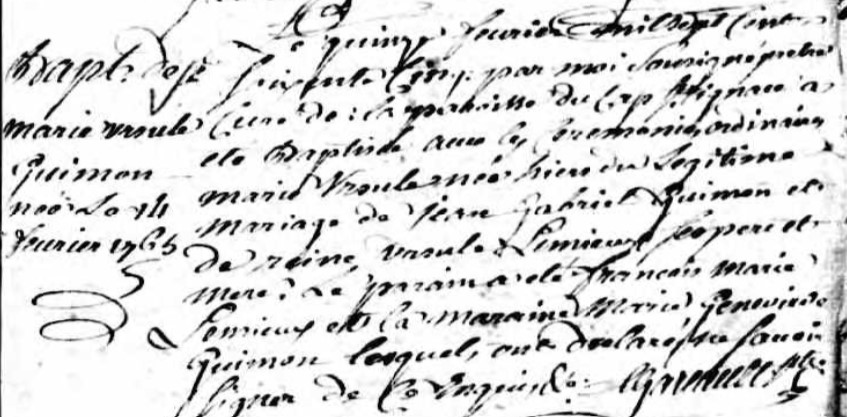 Bapt. de
marie ursule
Guimon
née Le 14
fevrier 1765
Le quinze fevrier mil sept cent
soixante cinq par moi soussigné pretre
Curé de la paroisse du Cap St ignace a
eté Baptisée avec les Ceremonies ordinaires
marie Ursule née hier du Legitime
mariage de jean Gabriel Guimon et
de reine ursule Lemieux ses pere et
mere. Le parain a eté francois marie
Lemieux et la maraine Marie Genevieve
Guimon lesquels ont declaré ne savoir
signer de Ce Enquis